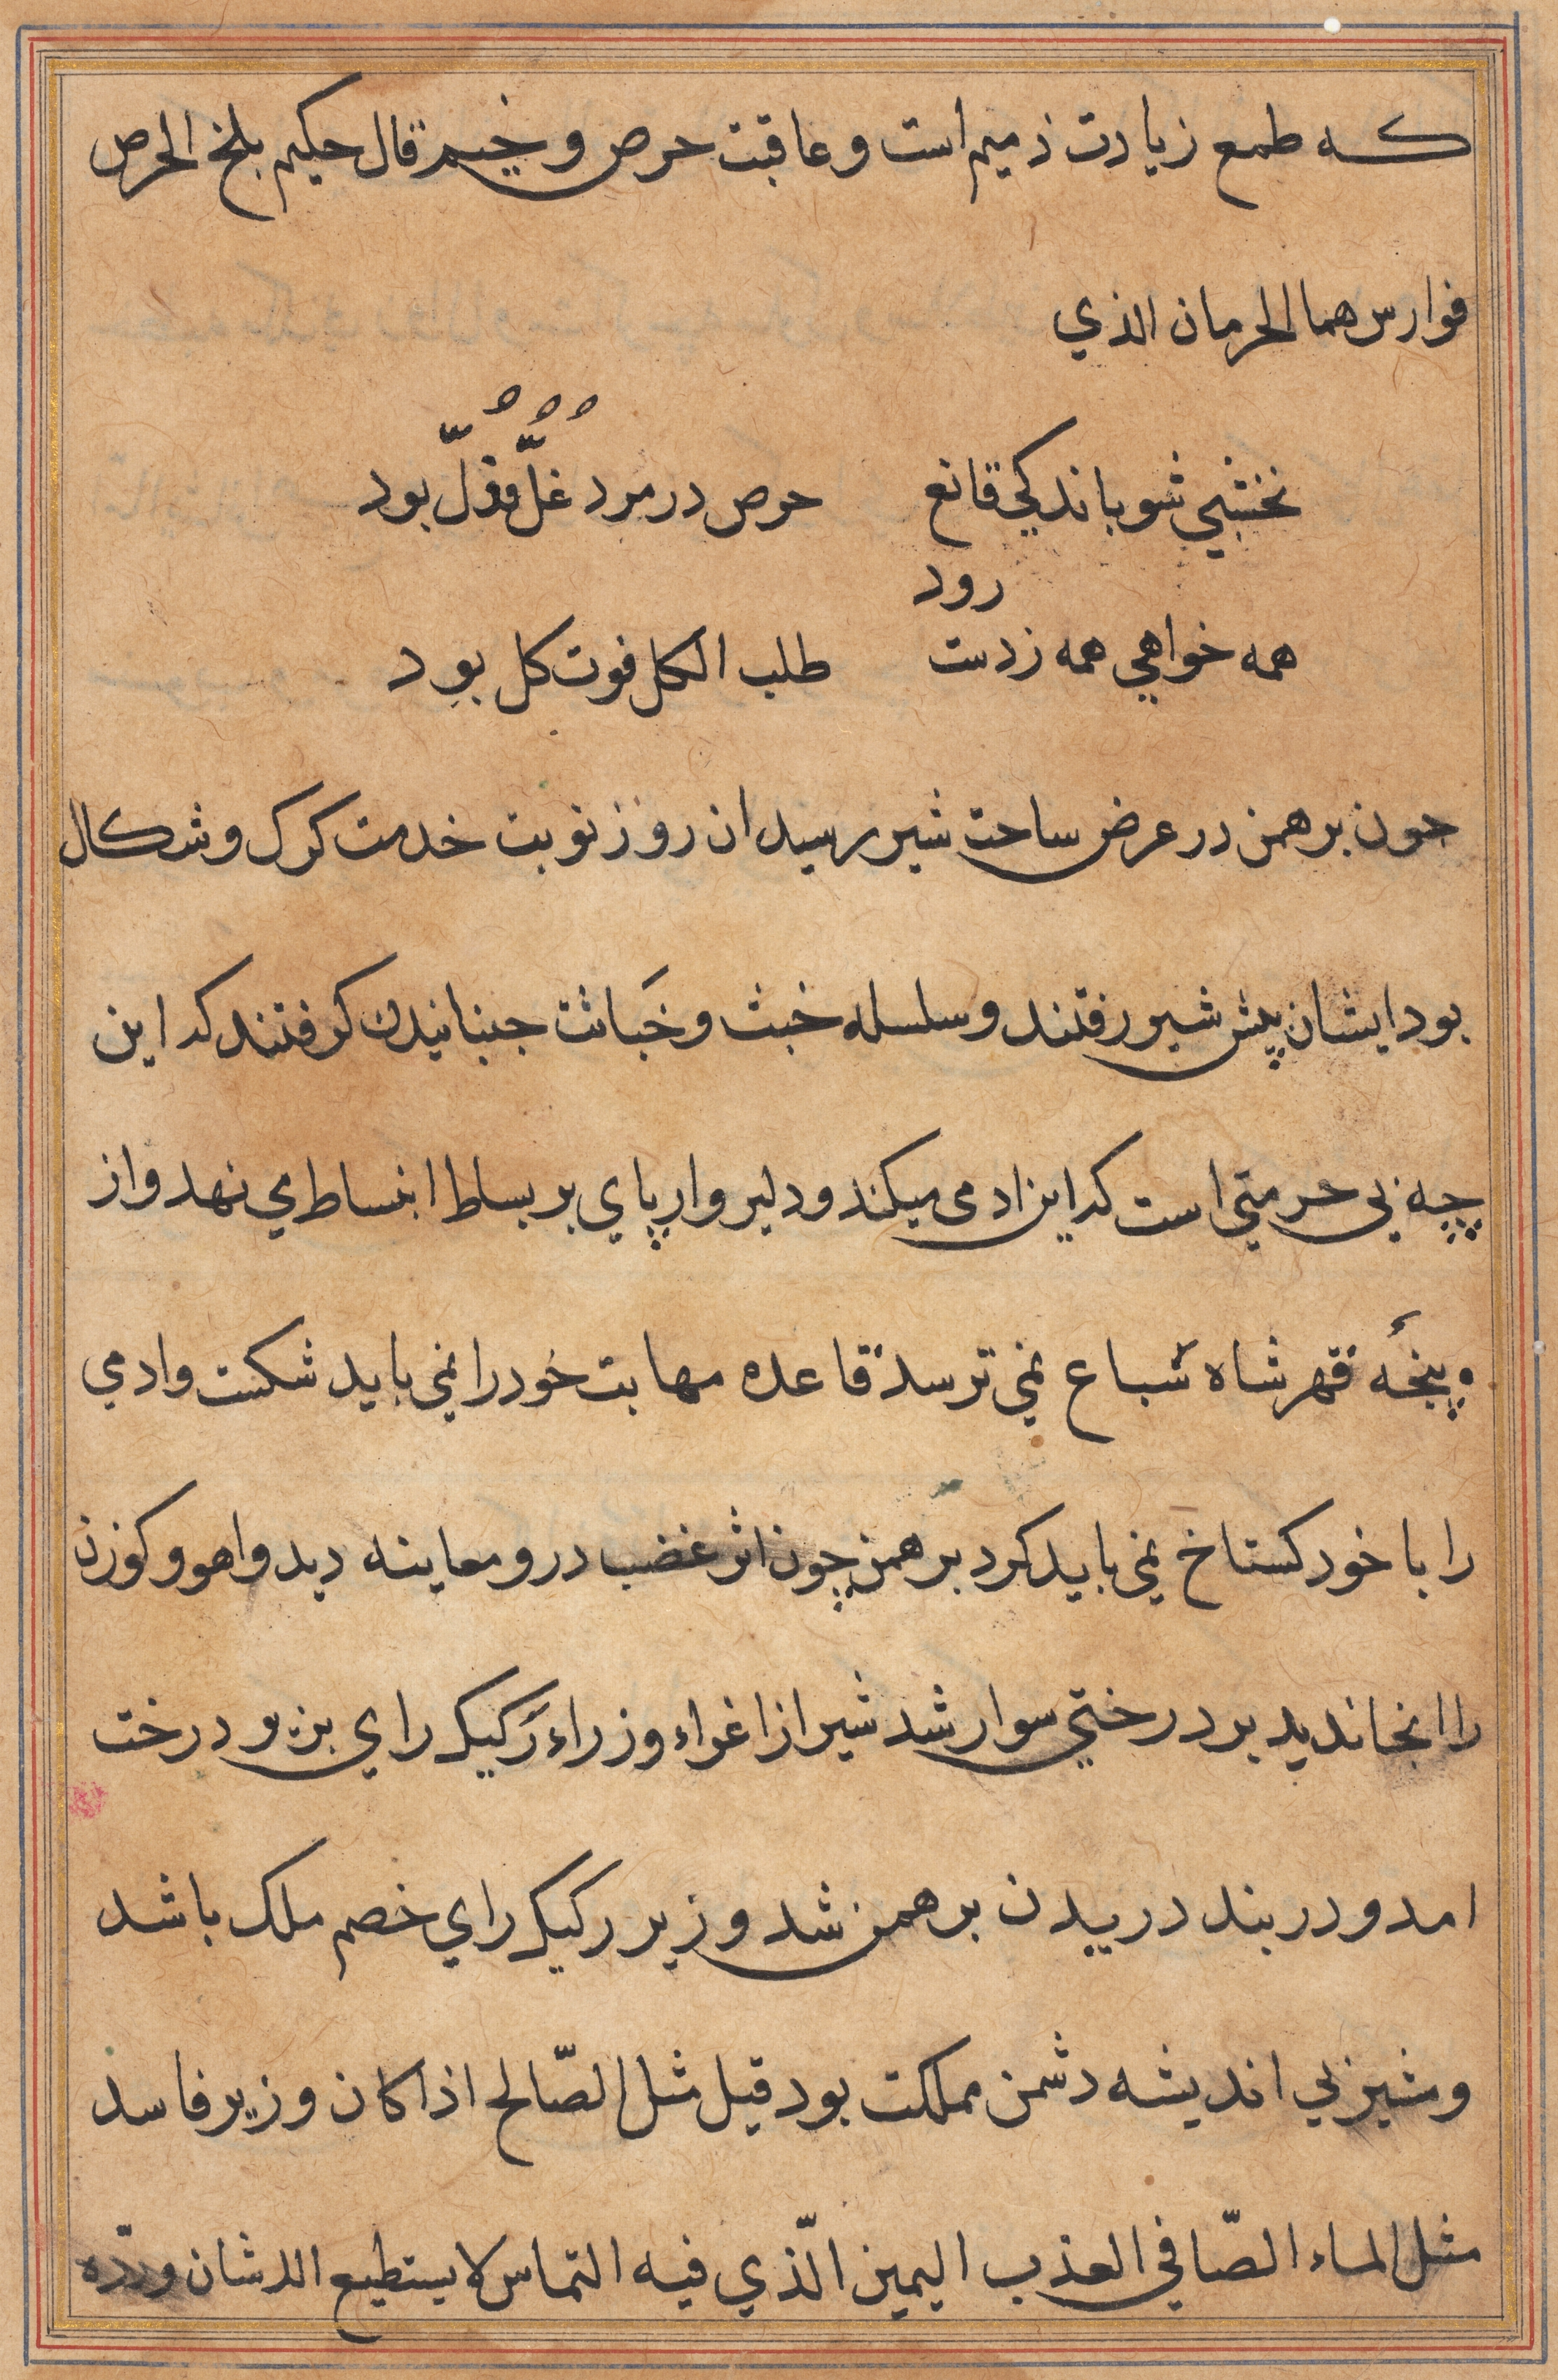 که طمع زیادت ذمیم است و عاقبت حرص و خیم قال حکیم بلخ الحرص
فوارس هما الحرمان الذي
نخشبي شو باندکي قانع حرص در مرد غلّ و ذلّ بود
رود
همه خواهي همه زدست طلب الکل فوت کل بود
جون برهمن در عرض ساحت شیر رسید ان روز نوبت خدمت کرک و شکال
بود ایشان پیش شیر رفتند و سلسله خبث و خَباثت جنبانیدن کرفتند که این
چه بي حرمتي است که این ادمی میکند و دلیر وار پاي بر بساط انبساط مي نهد و از
پنجهٔ قهر شاه سباع نمي ترسد قاعده مهابت خود را نمي باید شکست وادمي
را با خود کستاخ نمي باید کرد برهمن چون اثر غضب درو معاینه دید و اهو و کوزن
را انجا ندید بر درختي سوار شد شیر از اغواء وزراء رکیک راي بزیر درخت
امد و در بند دریدن برهمن شد وزیر رکیک راي خصم ملک باشد
و مشیر بي اندیشه دشمن مملکت بود قیل مثل الصّالح اذا کان وزیر فاسد
مثل الماء الصّافي العذب الیمین الّذي فیه التماس لا یستطیع اللاشان وردّه